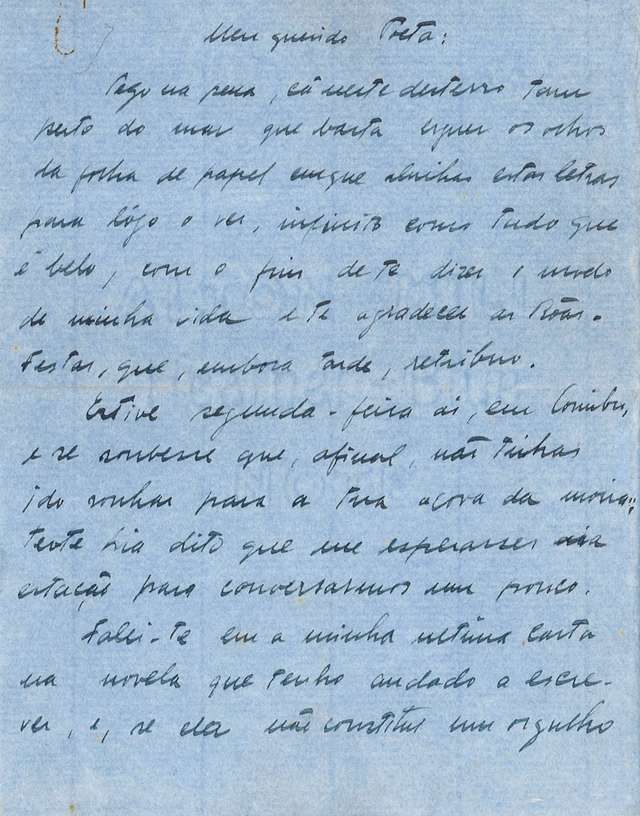 Meu querido Poeta:
Pego na pena, cá neste desterro tam
perto do mar que basta erguer os olhos
da folha de papel em que alinhas estas letras
para lógo o ver, infinito como tudo que
é belo, com o fim de te dizer o modo
de minha vida e te agradecer as Bôas-
Festas, que, embora tarde, retribuo.
Estive segunda-feira aí, em Coimbra,
e se soubesse que, afinal, não tinhas
ido sonhar para a tua da moira
ter-te-ia dito que me esperasses na
estação para conversarmos um pouco.
Falei-te em a minha ultima carta
na novela que tenho andado a escre-
ver, e, se ela não constitui um orgulho